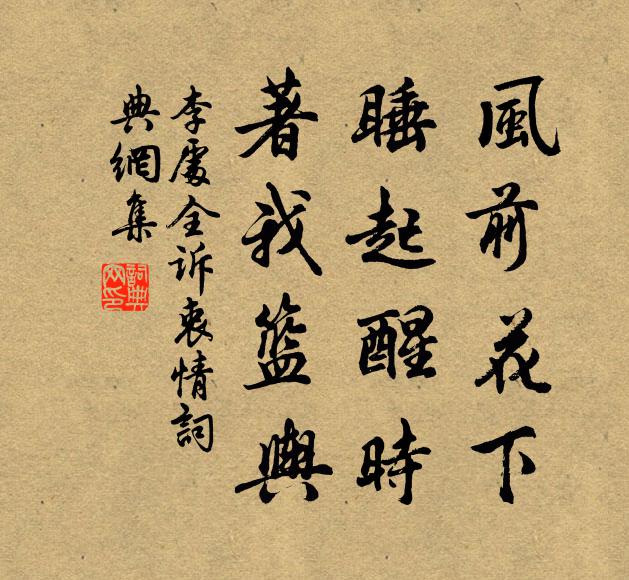 風前花下
睡起醒時
著我籃輿
李處全訴衷情詞
典網集
詞典网印